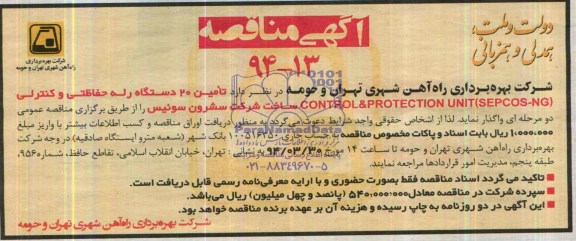 دولت و ملت،
همدلی و همزبانی
آگهی مناقصه
۹۴-۱۳
شرکت بهره‌برداری
راه‌آهن شهری تهران و حومه
شرکت بهره‌برداری راه‌آهن شهری تهران و حومه در نظر دارد تأمین ۲۰ دستگاه رله حفاظتی و کنترلی
CONTROL&PROTECTION UNIT(SEPCOS-NG) ساخت شرکت سشرون سوئیس را از طریق برگزاری مناقصه عمومی
دو مرحله ای واگذار نماید. لذا از اشخاص حقوقی واجد شرایط دعوت می‌گردد به منظور دریافت اوراق مناقصه و کسب اطلاعات بیشتر با واریز مبلغ
۱.۰۰۰.۰۰۰ ریال بابت اسناد و پاکات مخصوص مناقصه بانک شهر (شعبه مترو ایستگاه صادقیه) در وجه شرکت
بهره‌برداری راه‌آهن شهری تهران و حومه تا ساعت ۱۴ مورخ ۹۴/۰۳/۳۰ تهران، خیابان انقلاب اسلامی، تقاطع حافظ، شماره ۹۵۶،
طبقه پنجم، مدیریت امور قراردادها مراجعه نمایند.
ParsNamadData
۰۲۱-۸۸۳۴۹۶۷۰-۵
▪ تاکید می گردد اسناد مناقصه فقط بصورت حضوری و با ارایه معرفی‌نامه رسمی قابل دریافت است.
▪ سپرده شرکت در مناقصه معادل ۵۴۰.۰۰۰.۰۰۰ (پانصد و چهل میلیون) ریال می‌باشد.
▪ این آگهی در دو روزنامه به چاپ رسیده و هزینه آن بر عهده برنده مناقصه خواهد بود.
شرکت بهره‌برداری راه‌آهن شهری تهران و حومه